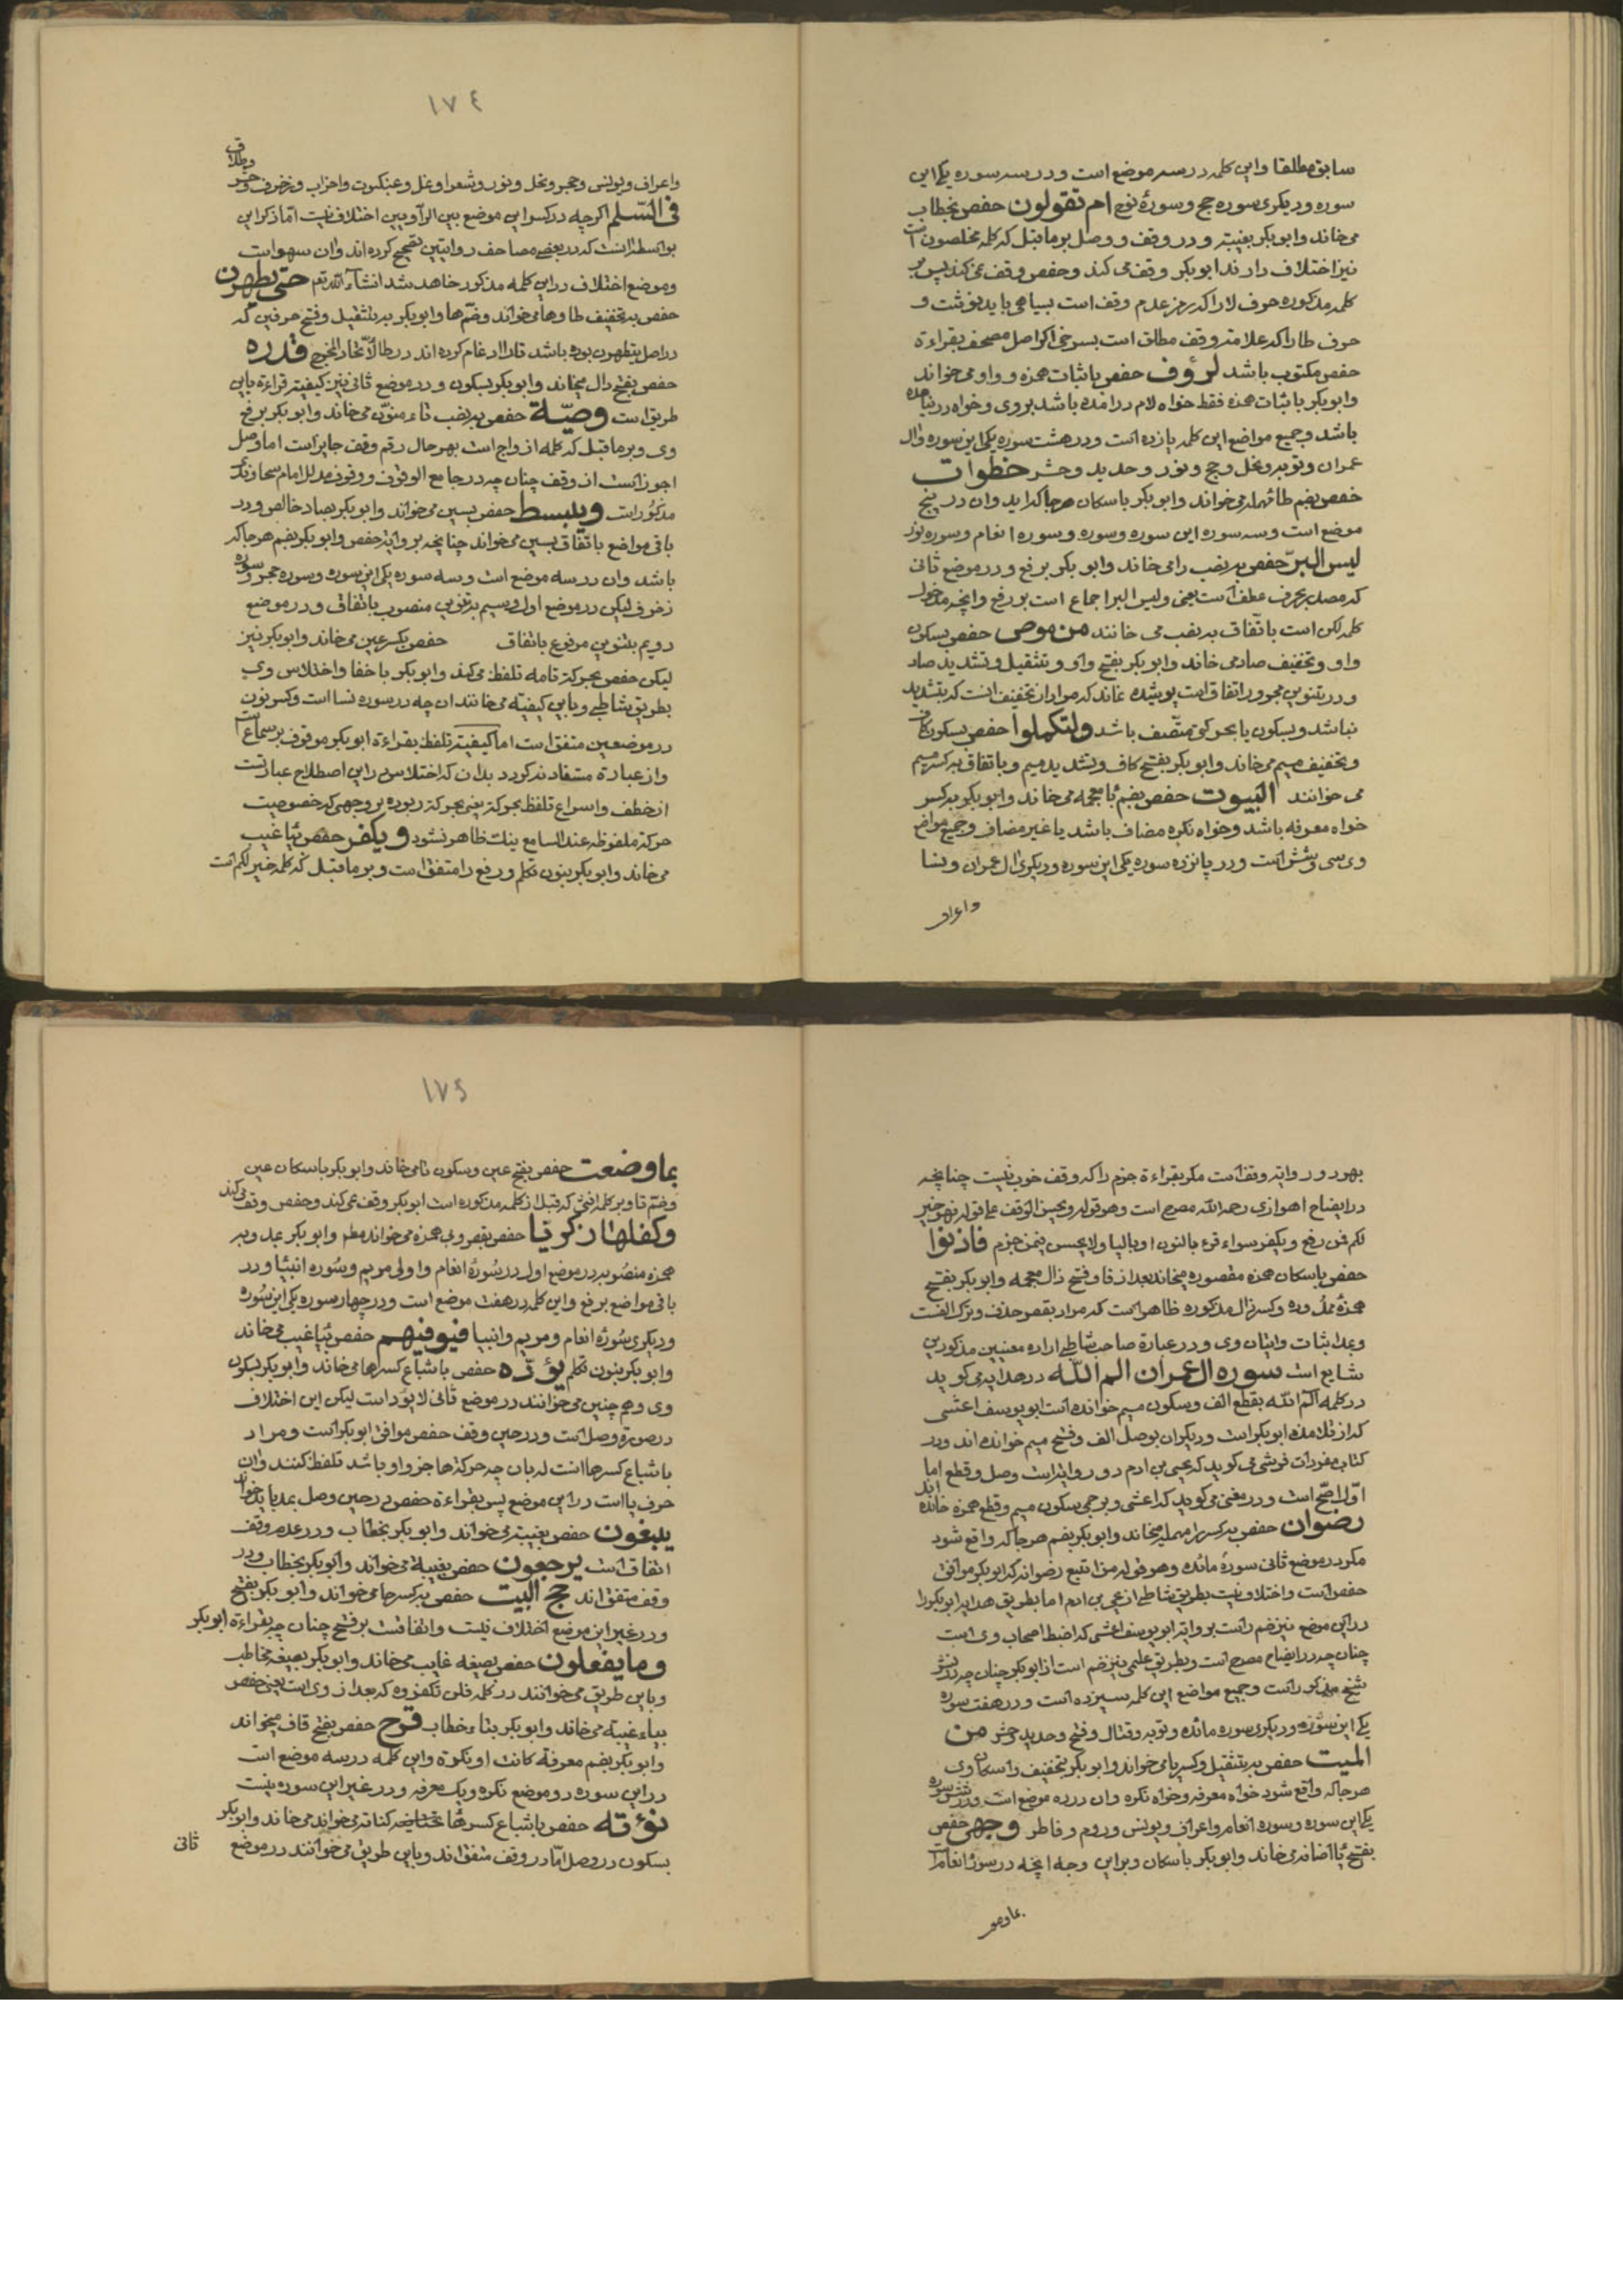 سابق مطلقا واین کلمه در سه موضع است ودر سه سوره یکی این
سوره ودیکری سوره حج وسورهٔ نوح ام تقولون حفص بخطاب
می خاند وابو بکر بغیبة ودر وقف ووصل بر ما قبل که کلمه مخلصون است
نیز اختلاف دارند ابو بکر وقف می کند وحفص وقف نمی کند پس بر
کلمه مذکوره حرف لا را که رمز عدم وقف است بسیاهی باید نوشت و
حرف طا را که علامة وقف مطلق است بسرخی اکر اصل مصحف بقراءة
حفص مکتوب باشد لرؤف حفص باثبات همزه وواو می خواند
وابو بکر باثبات همزه فقط خواه لام در امده باشد بر وی وخواه در نیامده
باشد وجمیع مواضع این کلمه یازده است ودر هشت سوره یکی این سوره وال
عمران وتوبه ونحل وحج ونور وحدید وحشر خطوات
حفص بضم طا مهمله می خواند وابو بکر باسکان هر جا که اید وان در پنج
موضع است وسه سوره این سوره وسوره وسوره انعام وسوره نور
لیس البرّ حفص بنصب را می خاند وابو بکر برفع ودر موضع ثانی
که مصدر بحرف عطف است یعنی ولیس البر اجماع است بر رفع وانچه مدخول
کلمه لکن است باتفاق بنصب می خانند من موص حفص بسکون
واو وتخفیف صاد می خاند وابو بکر بفتح واو وتثقیل وتشدید صاد
ودر تنوین مجرور اتفاق است پوشیده نماند که مراد از تخفیف انست که بتشدید
نباشد وبسکون یا بحرکتی متصف باشد ولتکملوا حفص بسکون کاف
وتخفیف میم می خاند وابو بکر بفتح کاف وتشدید میم وباتفاق بکسر میم
می خوانند البیوت حفص بضم با معجمه می خاند وابو بکر بکسر
خواه معرفه باشد وخواه نکره مضاف باشد یا غیر مضاف وجمیع مواضع
وی سی وشش است ودر پانزده سوره یکی این سوره ودیکری ال عمران ونسا
واعراف
١٧٤
واعراف ویونس وحجر ونحل ونور وشعرا ونمل وعنکبوت واحزاب وزخرف وحشر
وطلاق
فی السّلم اکرچه در کسر این موضع بین الراویین اختلاف نیست امّا ذکر این
بواسطه انست که در بعضی مصاحف روایتین تصحیح کرده اند وان سهو است
وموضع اختلاف در این کلمه مذکور خاهد شد انشاء الله تعم حتی یطهرن
حفص بتخفیف طا وها می خواند وضم ها وابو بکر بتثقیل وفتح حرفین که
در اصل یتطهرن بوده باشد تا را ادغام کرده اند در طا لاتّحاد المخرج قدره
حفص بفتح دال میخاند وابو بکر بسکون ودر موضع ثانی نیز کیفیت قراءة باین
طریق است وصیّة حفص بنصب تاء منوّن می خاند وابو بکر برفع
وی وبر ما قبل که کلمه ازواج است بهر حال رقم وقف جایز است اما وصل
اجوز است از وقف چنان چه در جامع الوقوف ووقوف مدلل امام سجاوندی
مذکور است ویبسط حفص بسین می خواند وابو بکر بصاد خالص ودر
باقی مواضع باتّفاق بسین می خواند چنانچه بروایة حفص وابو بکر بضم هر جا که
باشد وان در سه موضع است وسه سوره یکی این سوره وسوره حجر وسوره
زخرف لیکن در موضع اول وسیم بتنوین منصوب باتفاق ودر موضع
دویم بتنوین مرفوع باتفاق حفص بکسر عین می خاند وابو بکر نیز
لیکن حفص بحرکة تامه تلفظ می کند وابو بکر باخفا واختلاس وی
بطریق شاطبی وباین کیفیة می خانند ان چه در سوره نسا است وکسر نون
در موضعین متفق است اما کیفیت تلفظ بقراءة ابو بکر موقوف بر سماع است
واز عبارة مستفاد نمی کردد بدان که اختلاس در این اصطلاح عبارتست
از خطف واسراع تلفظ بحرکة یعنی بحرکة ربوده بر وجهی که خصوصیت
حرکة ملفوظه عند السامع نیک ظاهر نشود ویکفر حفص بیا غیب
می خاند وابو بکر بنون تکلم ورفع را متفق است وبر ما قبل که کلمه خیر لکم است
بهر دو روایة وقف است مکر بقراءة جزم را که وقف خوب نیست چنانچه
در ایضاح اهوازی رحمه الله مصرح است وهو قوله ویحسن الوقف علی قوله فهو خیر
لکم فمن رفع ویکفر سواء قرء بالنون او بالیا ولا یحسن بنمن جزم فاذنوا
حفص باسکان همزه مقصوره میخاند بعد از فا وفتح ذال معجمه وابو بکر بفتح
همزهٔ ممدوده وکسر ذال مذکوره ظاهر است که مراد بقصر حذف وترک الفست
وبمد اثبات واتیان وی ودر عبارة صاحب شاطبی اراده معنیین مذکورین
شایع است سوره ال عمران الم الله در هدایه می کوید
در کلمه الم الله بقطع الف وسکون میم خوانده است ابو یوسف اعشی
که از تلامذه ابو بکر است ودیکران بوصل الف وفتح میم خوانده اند ودر
کتاب مفردات قوشی می کوید که یحیی بن ادم دو روایتست وصل وقطع اما
اوّل اصحّ است ودر مغنی می کوید که اعشی وبرجمی بسکون میم وقطع همزه خانده اند
رضوان حفص بکسر را مهمله میخاند وابو بکر بضم هر جا که واقع شود
مکر در موضع ثانی سورهٔ مائده وهو قوله من اتبع رضوانه که ابو بکر موافق
حفص است واختلاف نیست بطریق شاطبی از یحیی بن ادم اما بطریق هدایه ابو بکر را
در این موضع نیز ضم راست بروایة ابو یوسف اعشی که اضبط اصحاب وی است
چنان چه در ایضاح مصرح است وبطریق علیمی نیز ضم است از ابو بکر چنان چه در نشر
شیخ مذکور است وجمیع مواضع این کلمه سیزده است ودر هفت سوره
یکی این سوره ودیکری سوره مائده وتوبه وقتال وفتح وحدید وحشر من
المیت حفص بتثقیل وکسر یا می خواند وابو بکر بتخفیف واسکان وی
هر جا که واقع شود خواه معرفه وخواه نکره وان در ده موضع است ودر شش سوره
یکی این سوره وسوره انعام واعراف ویونس وروم وفاطر وجهی حفص
بفتح یا اضافه می خاند وابو بکر باسکان وبر این وجه انچه در سورهٔ انعام است
بما وضعت
١٧٥
بما وضعت حفص بفتح عین وسکون تا می خاند وابو بکر باسکان عین
وضمّ تا وبر کلمه انثی که قبل از کلمه مذکوره است ابو بکر وقف نمی کند وحفص وقف می کند
وکفلها زکریا حفص بقصر وبی همزه می خواند مطم وابو بکر بمد وبر
همزه منصوبه در موضع اول در سورهٔ انعام واولی مریم وسوره انبیا ودر
باقی مواضع برفع واین کلمه در هفت موضع است ودر چهار سوره یکی این سوره
ودیکری سورهٔ انعام ومریم وانبیا فیوفیهم حفص بیا غیب می خاند
وابو بکر بنون تکلم یؤدّه حفص باشباع کسر ها می خاند وابو بکر بسکون
وی وهم چنین می خوانند در موضع ثانی لا یؤد است لیکن این اختلاف
در صورة وصل است ودر حین وقف حفص موافق ابو بکر است ومراد
باشباع کسر ها انست که بان چه حرکة ها جز واو باشد تلفظ کنند وان
حرف یا است در این موضع پس بقراءة حفص در حین وصل بمد باید خواند
یبغون حفص بغیبة می خواند وابو بکر بخطاب ودر عدم وقف
اتفاق است یرجعون حفص بغیبة می خواند وابو بکر بخطاب ودر
وقف متفق اند حج البیت حفص بکسر حا می خواند وابو بکر بفتح
ودر غیر این موضع اختلاف نیست واتفاقست بر فتح چنان چه بقراءة ابو بکر
وما یفعلون حفص بصیغه غایب می خاند وابو بکر بصیغه مخاطب
وباین طریق می خوانند در کلمه فلن تکفروه که بعد از وی است یعنی حفص
بیاء غیبة می خاند وابو بکر بتاء خطاب قرح حفص بفتح قاف میخواند
وابو بکر بضم معرفة کانت او نکرة واین کلمه در سه موضع است
در این سوره دو موضع نکره ویک معرفه ودر غیر این سوره نیست
نؤته حفص باشباع کسر ها کنایة می خواند می خاند وابو بکر
بسکون در وصل امّا در وقف متفق اند وباین طریق می خوانند در موضع
ثانی